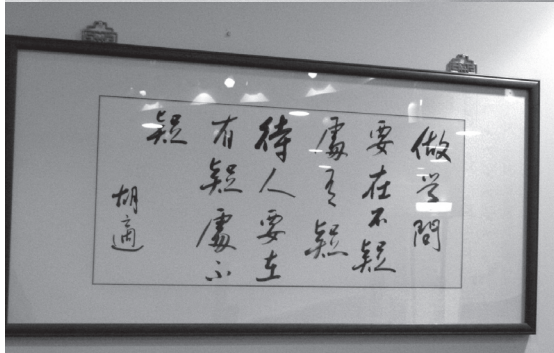 做学問
要在不疑
處有疑
待人要在
有疑處不
疑
胡適